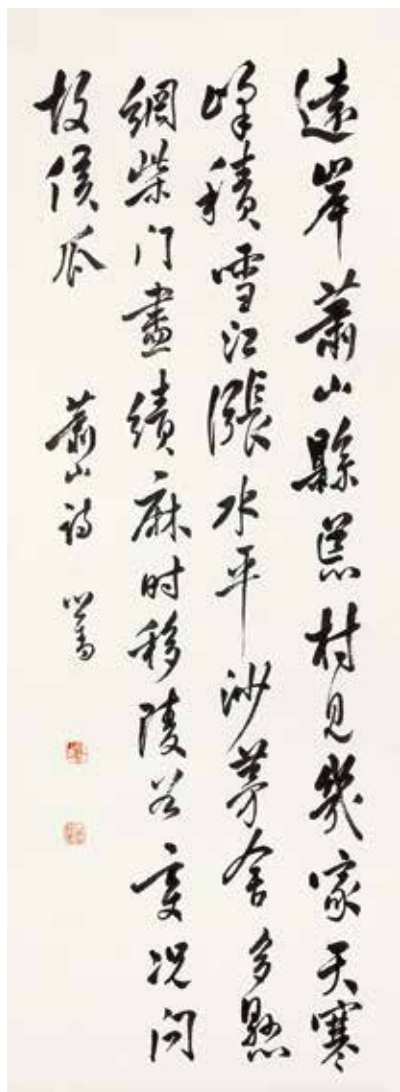 遠岸蕭山縣荒村見幾家天寒
峰積雪江漲水平沙茅舍多懸
網柴門盡績麻時移陵谷變況問
故侯瓜 蕭山詩 心畬